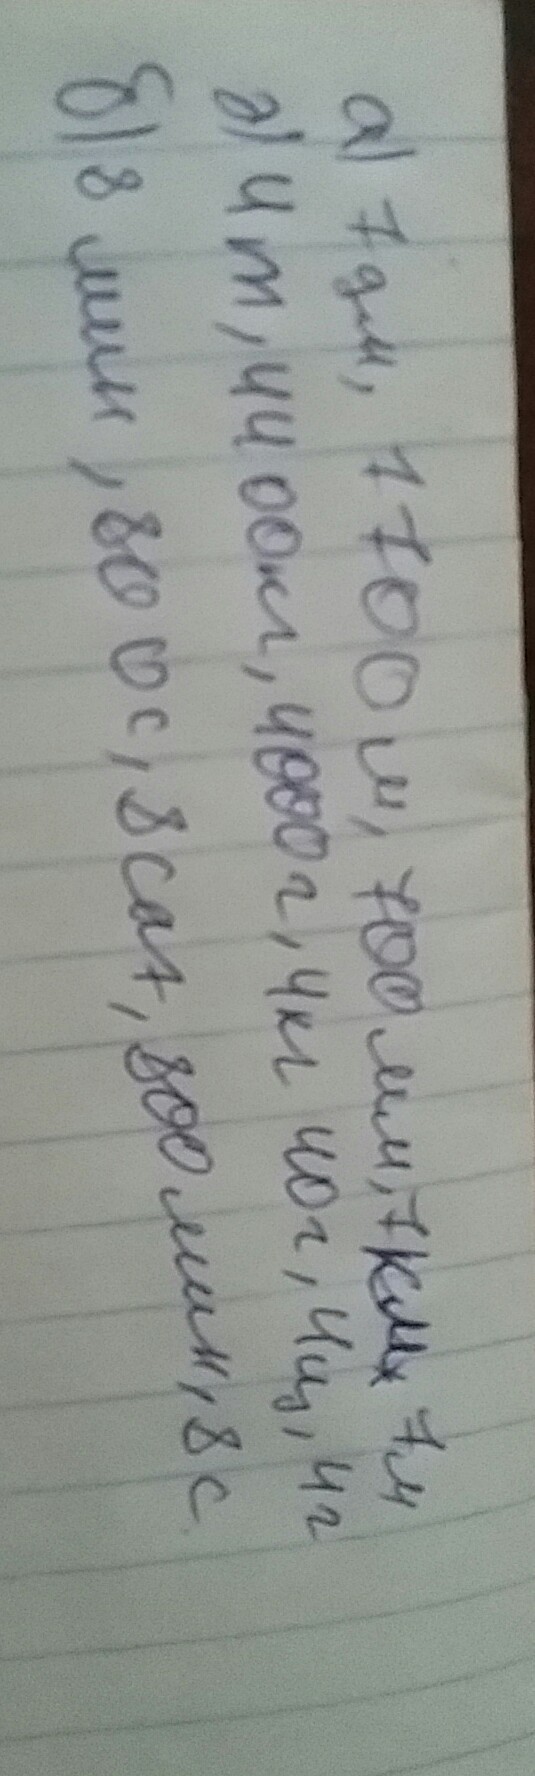 а) 7дм, 1700м, 700мм, 7км 7м
д) 4т, 4400кг, 4000г, 4кг 40г, 4ц, 4г
б) 8 мин, 800с, 8сат, 800мин, 8с